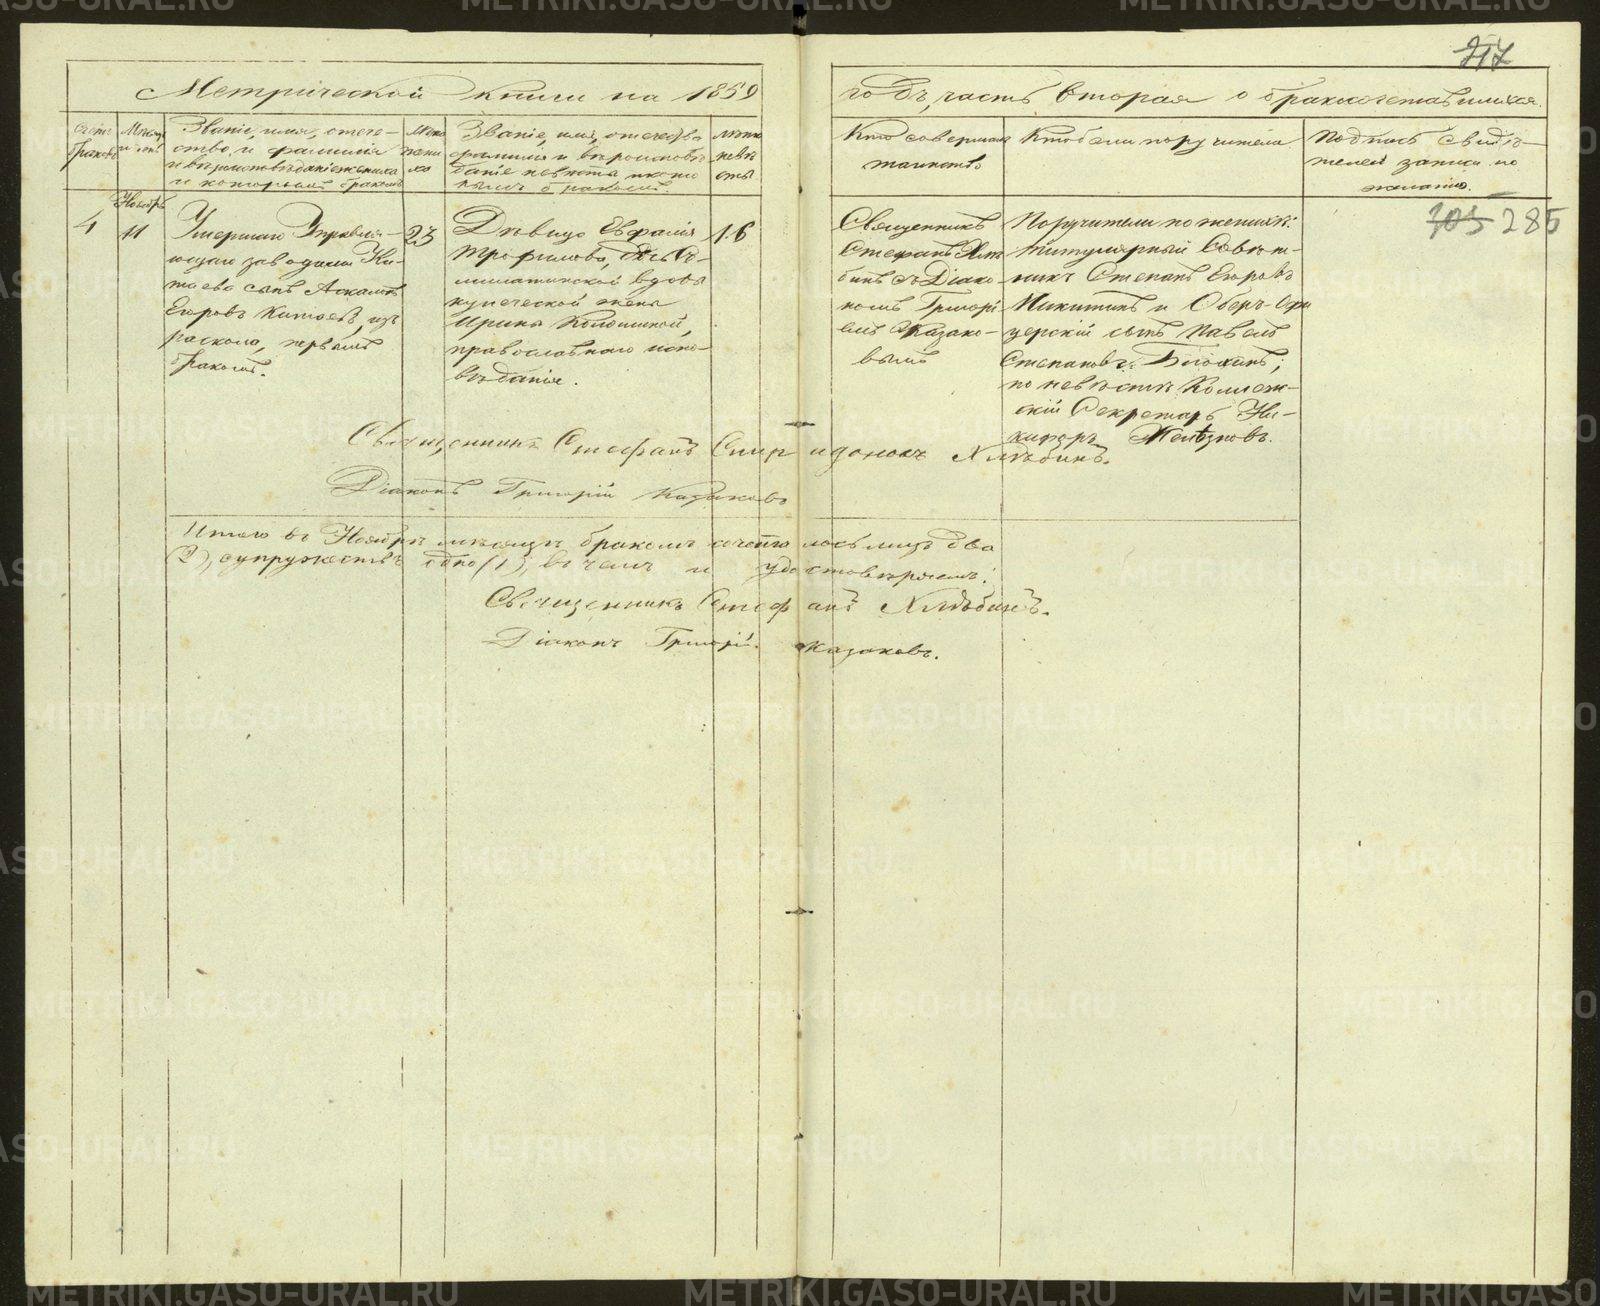 217
Метрической книги на 1859
годъ, часть вторая о бракосочетавшихся.
Счетъ браковъ
Мѣсяцъ и день
Званіе, имя, отече-
ство, и фамилія
и вѣроисповѣданіе жениха
и которымъ бракомъ
Званіе, имя, отечество
фамилія и вѣроисповѣ
даніе невѣсты и кото
рымъ бракомъ
лѣта
невѣ
сты
Кто совершалъ
таинство
Кто были поручители
Подпись свидѣ-
телей записи по
желанію.
Ноябрь
4
11
Умершаго Управля-
ющаго заводами Ки-
таева сынъ Аскалонъ
Егоровъ Китаевъ, изъ
раскола, первымъ
бракомъ.
23
Дѣвица Евфалія
Трофимова,
купеческой жены
Ирины
православнаго испо-
вѣданія.
16
Священникъ
Стефанъ Хлѣ
бинъ съ Діако
номъ Григорі
емъ Казако-
вымъ
Поручители по женихѣ:
Титулярный Совѣт-
никъ Степанъ Егоровъ
Никитинъ и Оберъ-Офи
церскій сынъ Павелъ
Степановъ Блохинъ;
по невѣстѣ Коллеж-
скій Секретарь Ни-
кифоръ Желѣзновъ.
105 285
Священникъ Стефанъ Спиридоновъ Хлѣбинъ.
Діаконъ Григорій Казаковъ
Итого въ Ноябрѣ мѣсяцѣ бракомъ сочеталось лицъ два
(2), супружествъ одно (1), въ чемъ и удостовѣряемъ:
Священникъ Стефанъ Хлѣбинъ.
Діаконъ Григорій Казаковъ.
METRIKI.GASO-URAL.RU